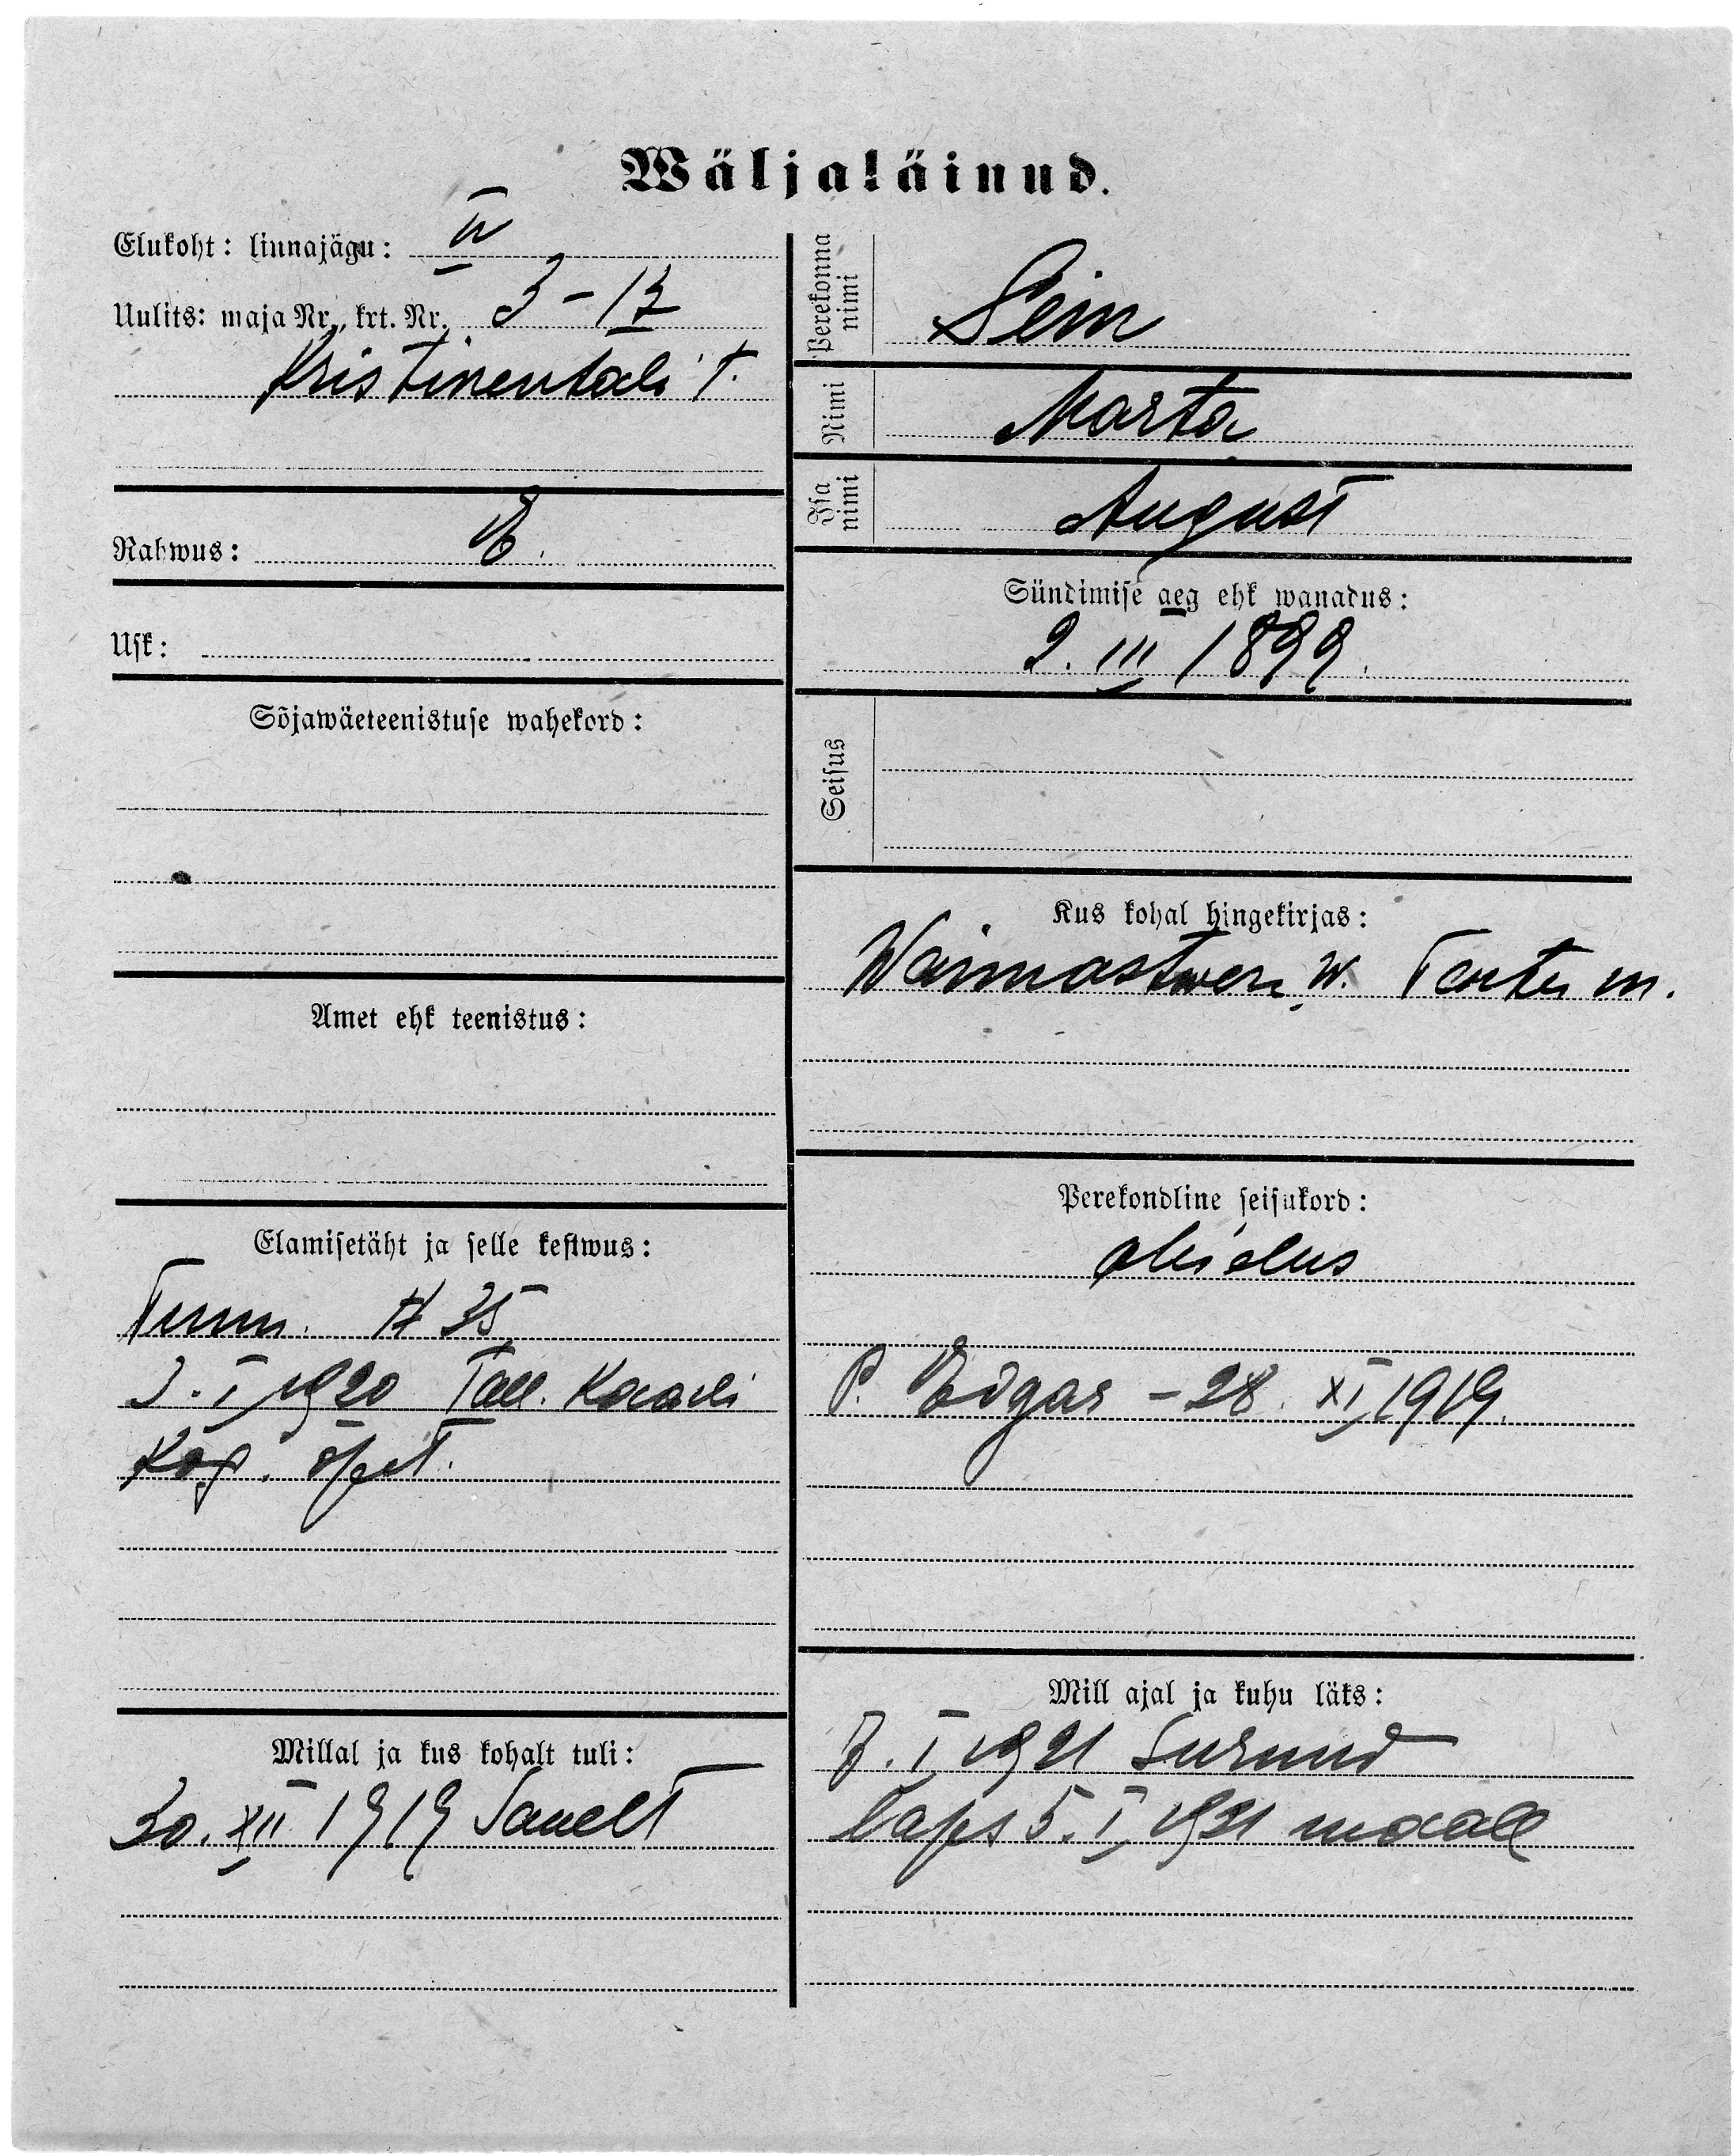 Wäljaläinud.
Elukoht: linnajägu: IV
Uulits: maja Nr., krt. Nr. 3-17
Kristinentali t.
Rahwus: E.
Usk:
Sõjawäeteenistuse wahekord:
Amet ehk teenistus:
Elamisetäht ja selle kestwus:
Tunn. № 35
3.I 1920 Tall. Kaarli
Kog. õpet.
Millal ja kus kohalt tuli:
30.XII 1919 Sauelt
Perekonna nimi
Sein
Nimi
Marta
Isa nimi
August
Sündimise aeg ehk wanadus:
2. III 1899.
Seisus
Kus kohal hingekirjas:
Waimastwere w. Tartu m.
Perekondline seisukord:
abielus
P. Edgar - 28. XI 1919.
Mill ajal ja kuhu läks:
7.I 1921 Surnud
laps 5.I 1921 maale